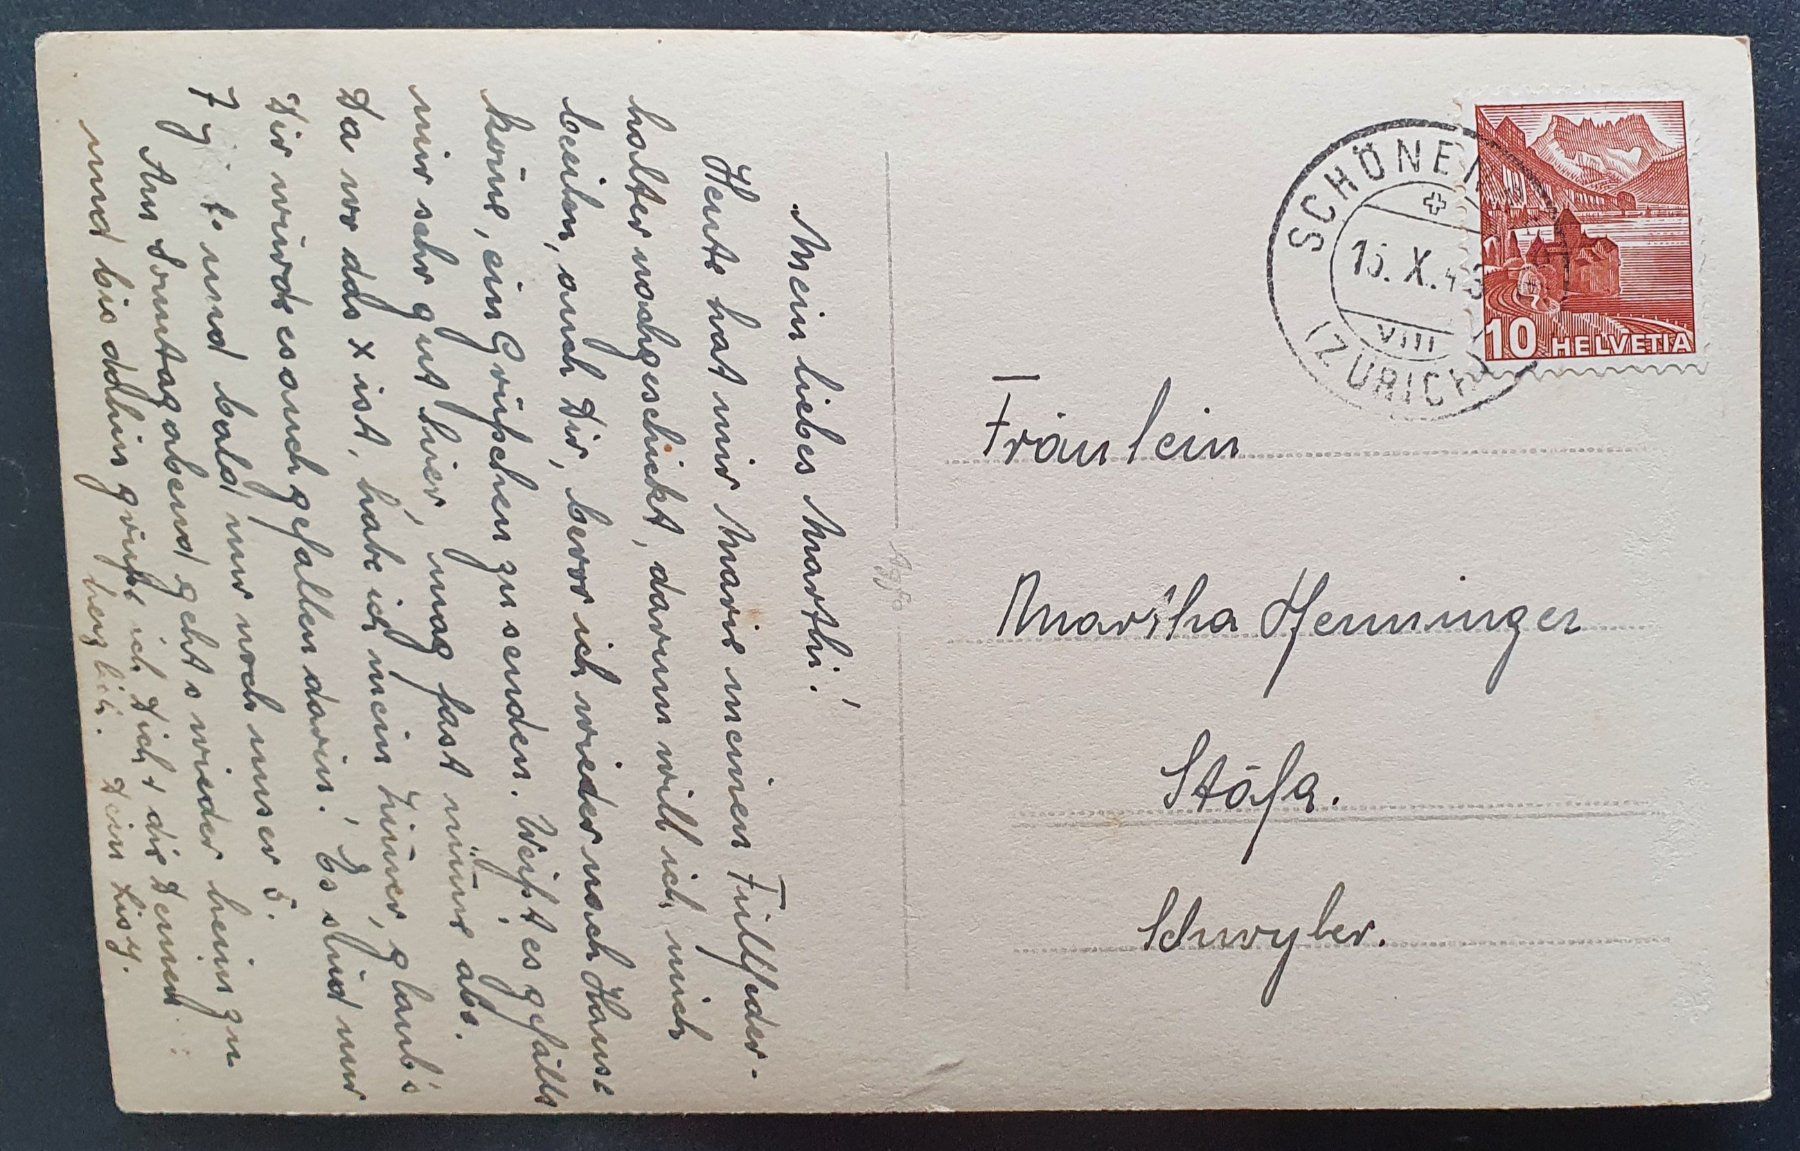 Mein liebes Marthi!
Heute hat mir Marie meinen Füllfeder-
halter nachgeschickt, darum will ich mich
beeilen, auch Dir, bevor ich wieder nach Hause
kom̄e, ein Grüßchen zu senden. Weißt es gefällt
mir sehr gut hier, mag fast nüm̄e abe.
Da wo das x ist, habe ich mein Zim̄er, glaub's
Dir würde es auch gefallen darin! Es sind nur
und bald nur noch unser 5.
Am Sonntag abend geht's wieder heim zu
und bis dahin grüßt ich Dich + die Deinen
herzlich. Dein Lisy.
Agfa
Fräulein
Martha Henninger
Stäfa.
SCHÖNEN
15. X. 43
VIII
(ZÜRICH)
10 HELVETIA